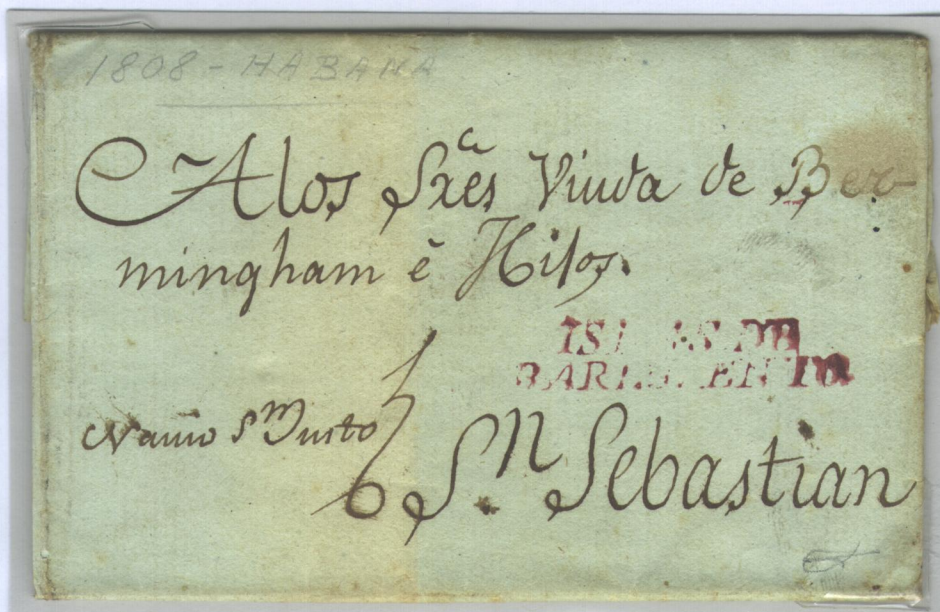 1808 - HABANA
A los Sres Viuda de Ber-
mingham é Hijos.
ISLAS DE
BARLOVENTO
Navio Sn Justo
Sn Sebastian